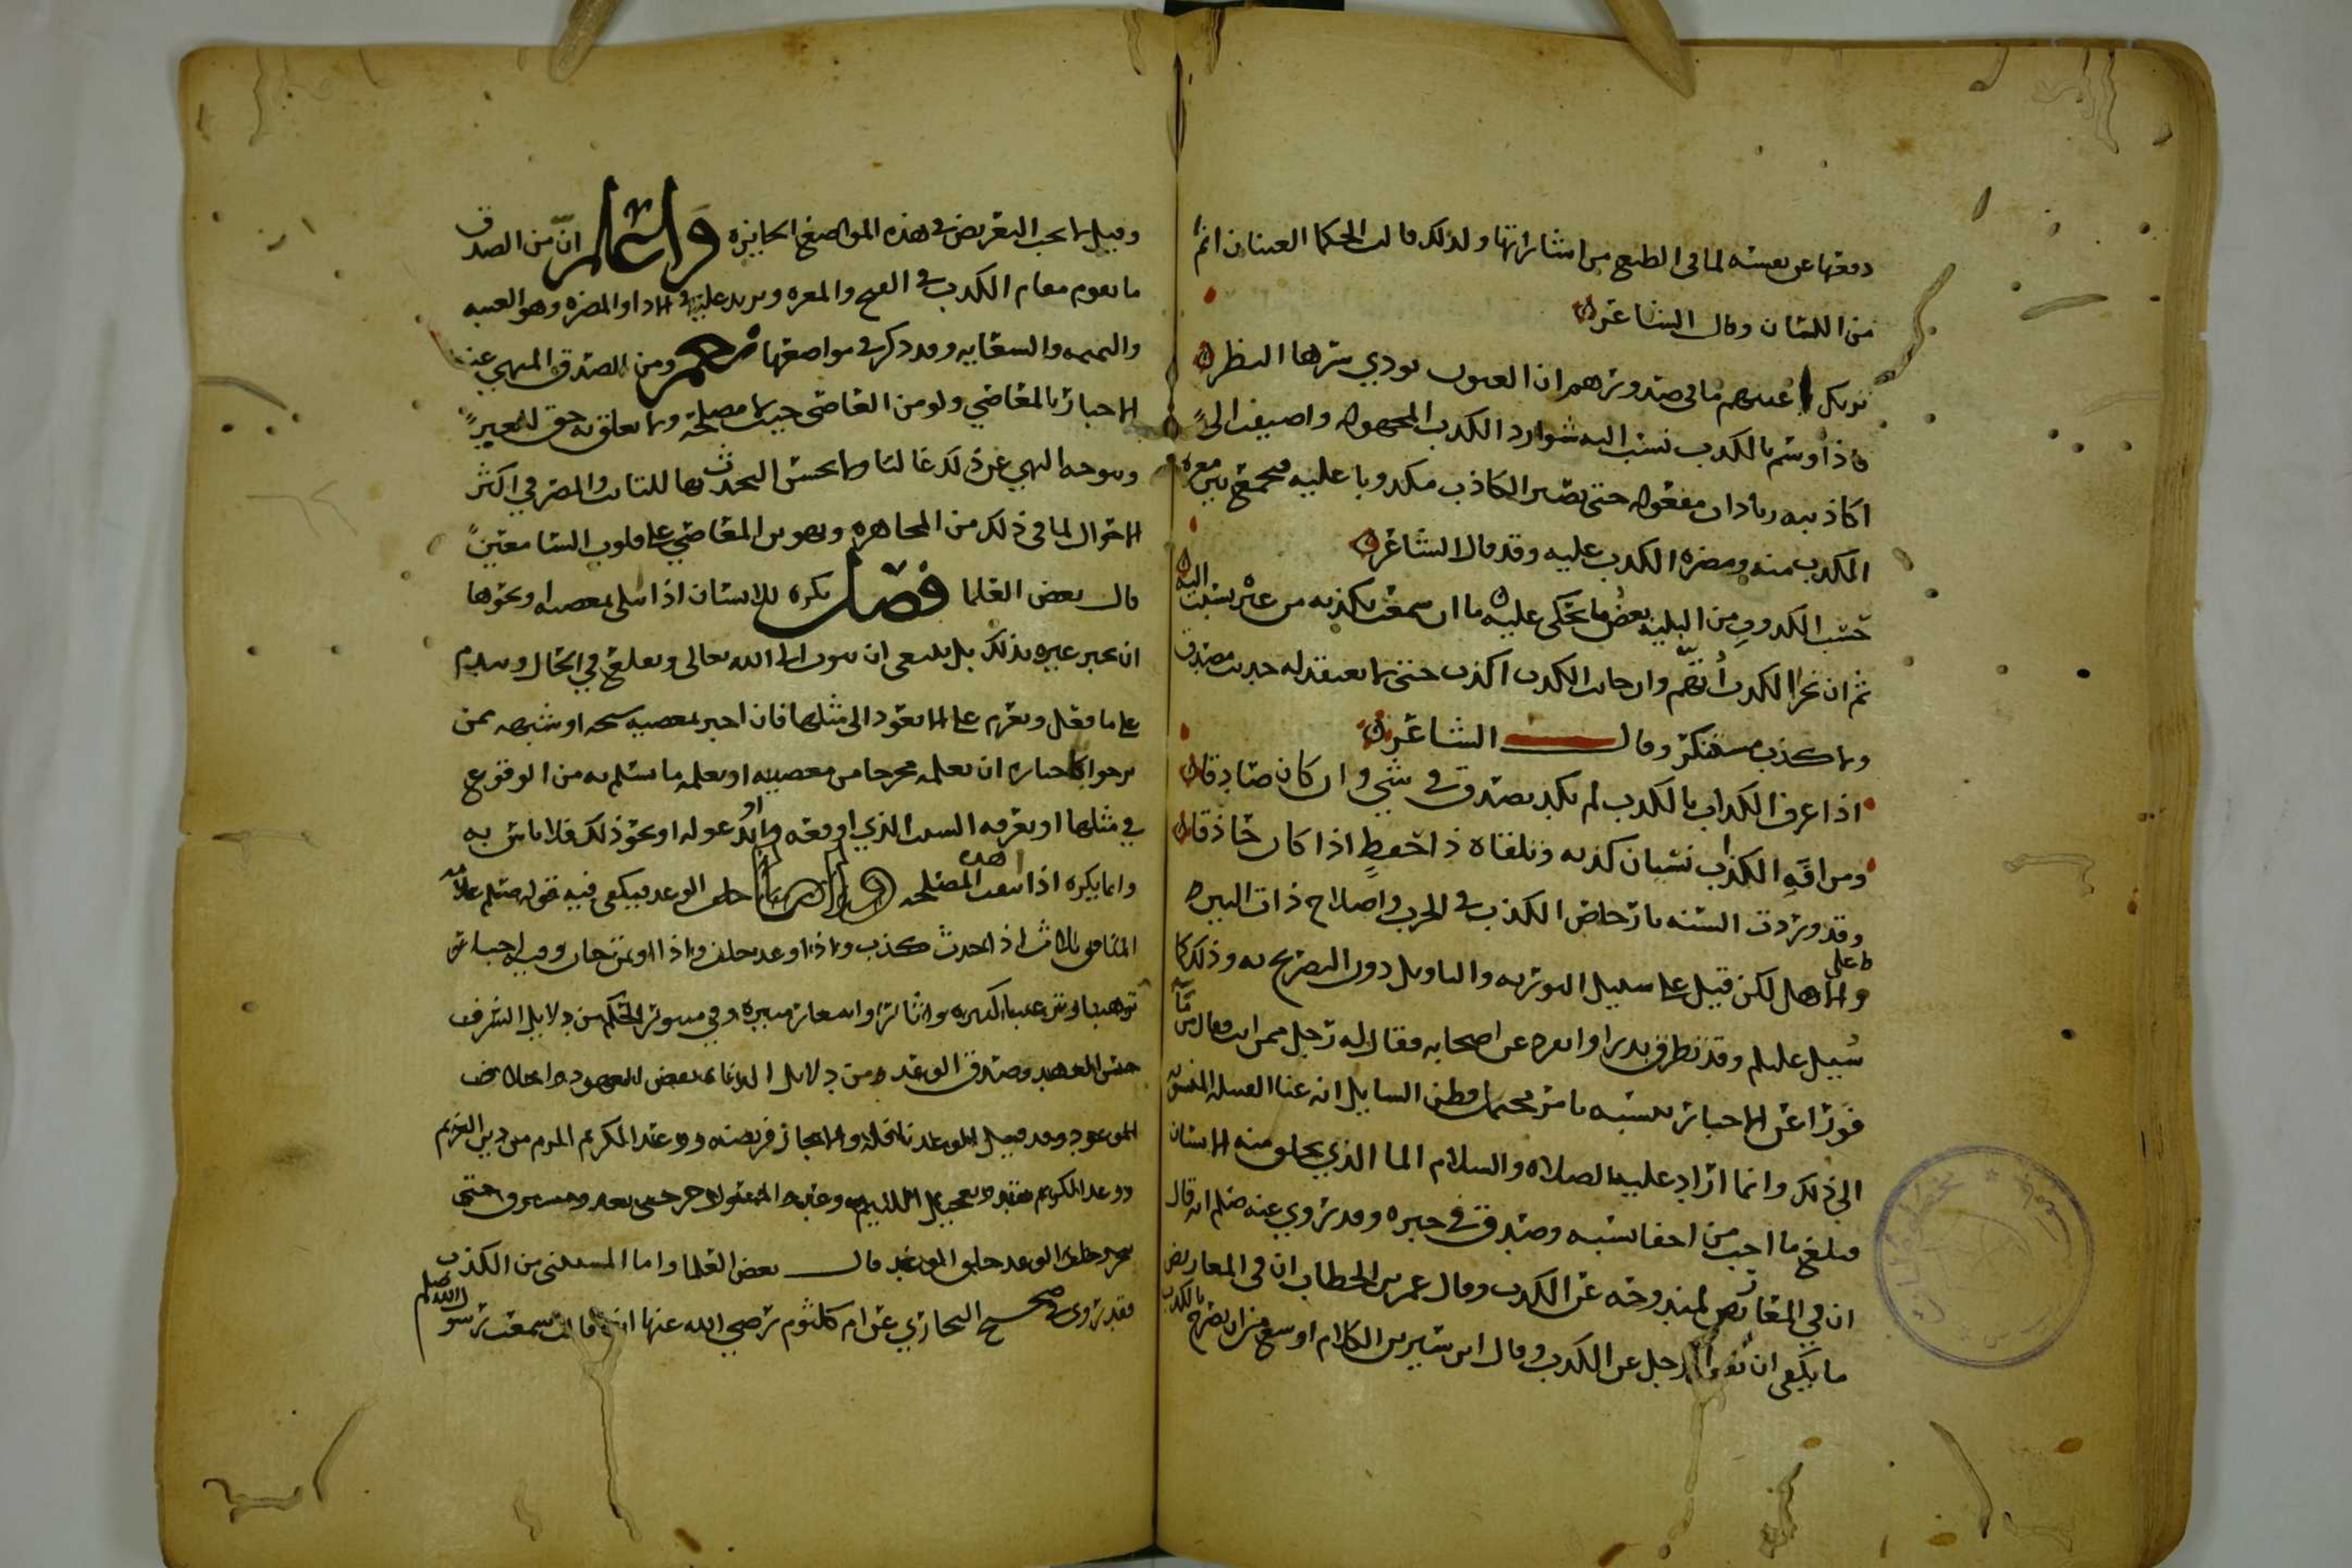 دفعها عن نفسه لما في الطبع من اشاراتها ولذلك قالت الحكما العينان انم
من اللسان وقال الشاعر
تريك اعينهم ما في صدورهم ان العيون يودي سرها النظر
فاذا وسم بالكذب نسب اليه شوارد الكذب المجهوله واضيف الى
اكاذيبه زيادات مفعوله حتى يصير الكاذب مكذوبا عليه فيجمع بين معره
الكذب منه ومضره الكذب عليه وقد قال الشاعر
حسب الكذوب من البليه بعض ما يحكى عليه ما ان سمعت بكذبه من غيره نسبت اليه
ثم ان تحرا الكذب اتهم وان جانب الكذب اكذب حتى لا يعتقد له حديث مصدق
ولا كذب مستنكر وقال الشاعر
اذا عرف الكذاب بالكذب لم يكد يصدق في شي وان كان صادقا
ومن افه الكذاب نسيان كذبه وتلقاه ذا حفظ اذا كان حاذقا
وقد وردت السنه بارخاص الكذب في الحرب واصلاح ذات البين
والاهل لكن قيل على سبيل التوريه والتاويل دون التصريح به وذلك كما
سيل عليلم وقد تطرف بدرا وانفرد عن اصحابه فقال له رجل ممن انت فقال من ما
فورا عن الاخبار بنسبه بامر محتمل وظن السايل انه عنا القبيله المنسوبه
الى ذلك وانما اراد عليه الصلاه والسلام الما الذي يخلق منه الانسان
فبلغ ما احب من اخفا نسبه وصدق في خبره وقد روي عنه صلم انه قال
ان في المعاريض لمندوحه عن الكذب وقال عمر بن الخطاب ان في المعاريض
ما يكفي ان الرجل عن الكذب وقال ابن سيرين الكلام اوسع من ان يصرح بالكذب
وقيل لا يجب التعريض في هذه المواضع الجايزه واعلم ان من الصدق
ما يقوم مقام الكذب في القبح والمعره ويزيد عليه في الاذا والمضره وهو الغيبه
والنميمه والسعايه وقد ذكر في مواضعها ومن الصدق المنهي عنه
الاخبار بالمعاصي ولو من العاصي حيث لا مصلحه ولا تعلق به حق للغير
وتوجه النهي عن ذلك غالبا ولا يحسن التحدث بها للتايب والمصر في اكثر
الاحوال لما في ذلك من المجاهره وتهوين المعاصي على قلوب السامعين
قال بعض العلما فصل يكره للانسان اذا ابتلي بمعصيه او نحوها
ان يخبر غيره بذلك بل ينبغي ان يتوب الى الله تعالى ويقلع في الحال ويندم
على ما فعل ويعزم على الا يعود الى مثلها فان اخبر بمعصيه شيخه او شبهه ممن
يرجوا باخباره ان يعلمه مخرجا من معصيته او يعلمه ما يسلم به من الوقوع
في مثلها او يعرفه السبب الذي اوقعه او يدعو له او نحو ذلك فلا باس به
وانما يكره اذا انتفت هذه المصلحه خلف الوعد فيكفي فيه قوله صلم علامه
المنافق ثلاث اذا حدث كذب واذا وعد خلف واذا اوتمن خان وفيه اخبار
ترهيبا وترغيبا كثيره واثار واشعار منيره وفي منثور الحكم من دلايل الشرف
حسن العهد وصدق الوعد ومن دلايل بعض العهود واخلاف
الموعود وقد قيل الوعد نافله والانجاز فريضه ووعد الكريم الزم من دين الغريم
ووعد الكريم نقد وتعجيل
خلف الوعد خلق الوغد قال بعض العلما واما المستثنى من الكذب
فقد روى في صحيح البخاري عن ام كلثوم رضي الله عنها انها قالت سمعت رسول الله صلم